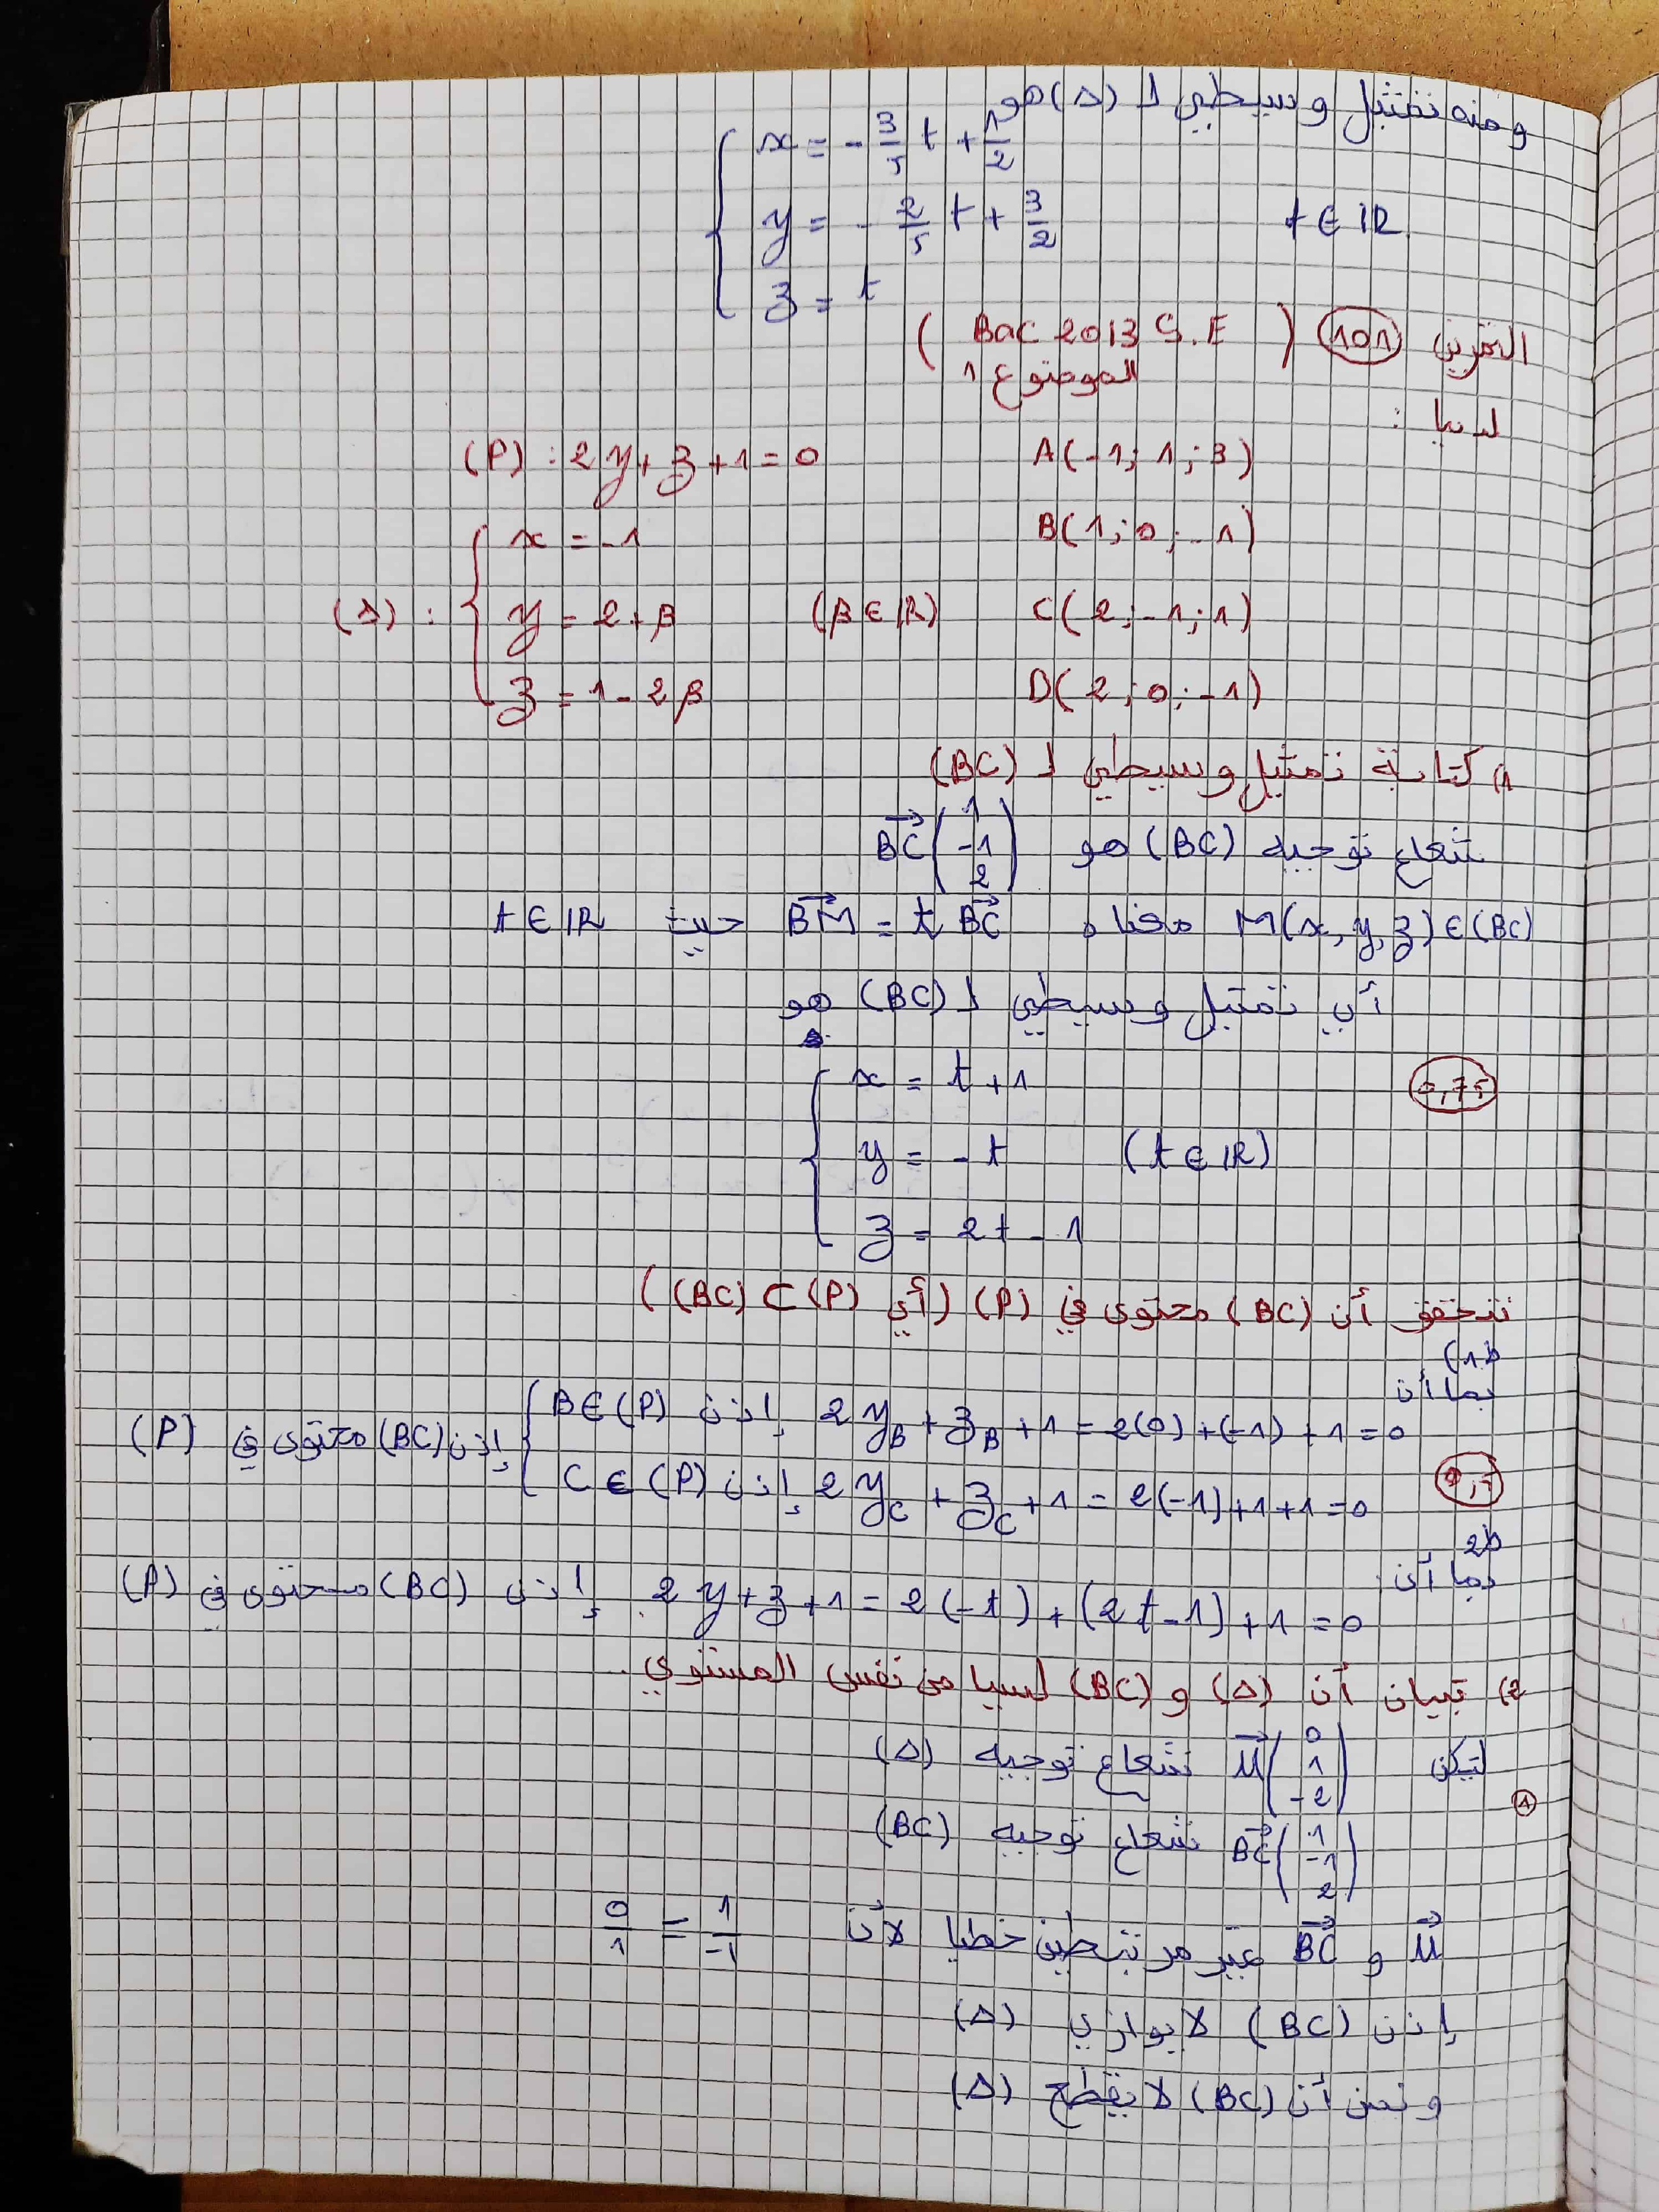 ومنه تمثيل وسيطي لـ (Δ) هو
x = - 3/5 t + 1/2
y = - 2/5 t + 3/2    t ∈ IR
z = t
التمرين 101 ( Bac 2013 S.E
الموضوع 1 )
لدينا :
A(-1; 1; 3)    (P) : 2y + z + 1 = 0
B(1; 0; -1)    x = -1
C(2; -1; 1)    (β ∈ IR)    y = 2 + β    (Δ) :
D(2; 0; -1)    z = 1 - 2β
1) كتابة تمثيل وسيطي لـ (BC)
شعاع توجيه (BC) هو BC (1 -1 2)
M(x, y, z) ∈ (BC) معناه BM = t BC حيث t ∈ IR
أي تمثيل وسيطي لـ (BC) هو
x = t + 1    0,75
y = - t    (t ∈ IR)
z = 2t - 1
نتحقق أن (BC) محتوى في (P) (أي (BC) ⊂ (P))
ط1)
بما أن
2y_B + z_B + 1 = 2(0) + (-1) + 1 = 0 إذن B ∈ (P)
2y_C + z_C + 1 = 2(-1) + 1 + 1 = 0 إذن C ∈ (P)    0,5
إذن (BC) محتوى في (P)
ط2
بما أن : 2y + z + 1 = 2(-t) + (2t - 1) + 1 = 0 إذن (BC) محتوى في (P)
2) تبيان أن (Δ) و (BC) ليسا من نفس المستوي .
لتكن u (0 1 -2) شعاع توجيه (Δ)
1
BC (1 -1 2) شعاع توجيه (BC)
u و BC غير مرتبطين خطيا لأن 0/1 = 1/-1
إذن (BC) لا يوازي (Δ)
و نحن أن (BC) لا يقطع (Δ)